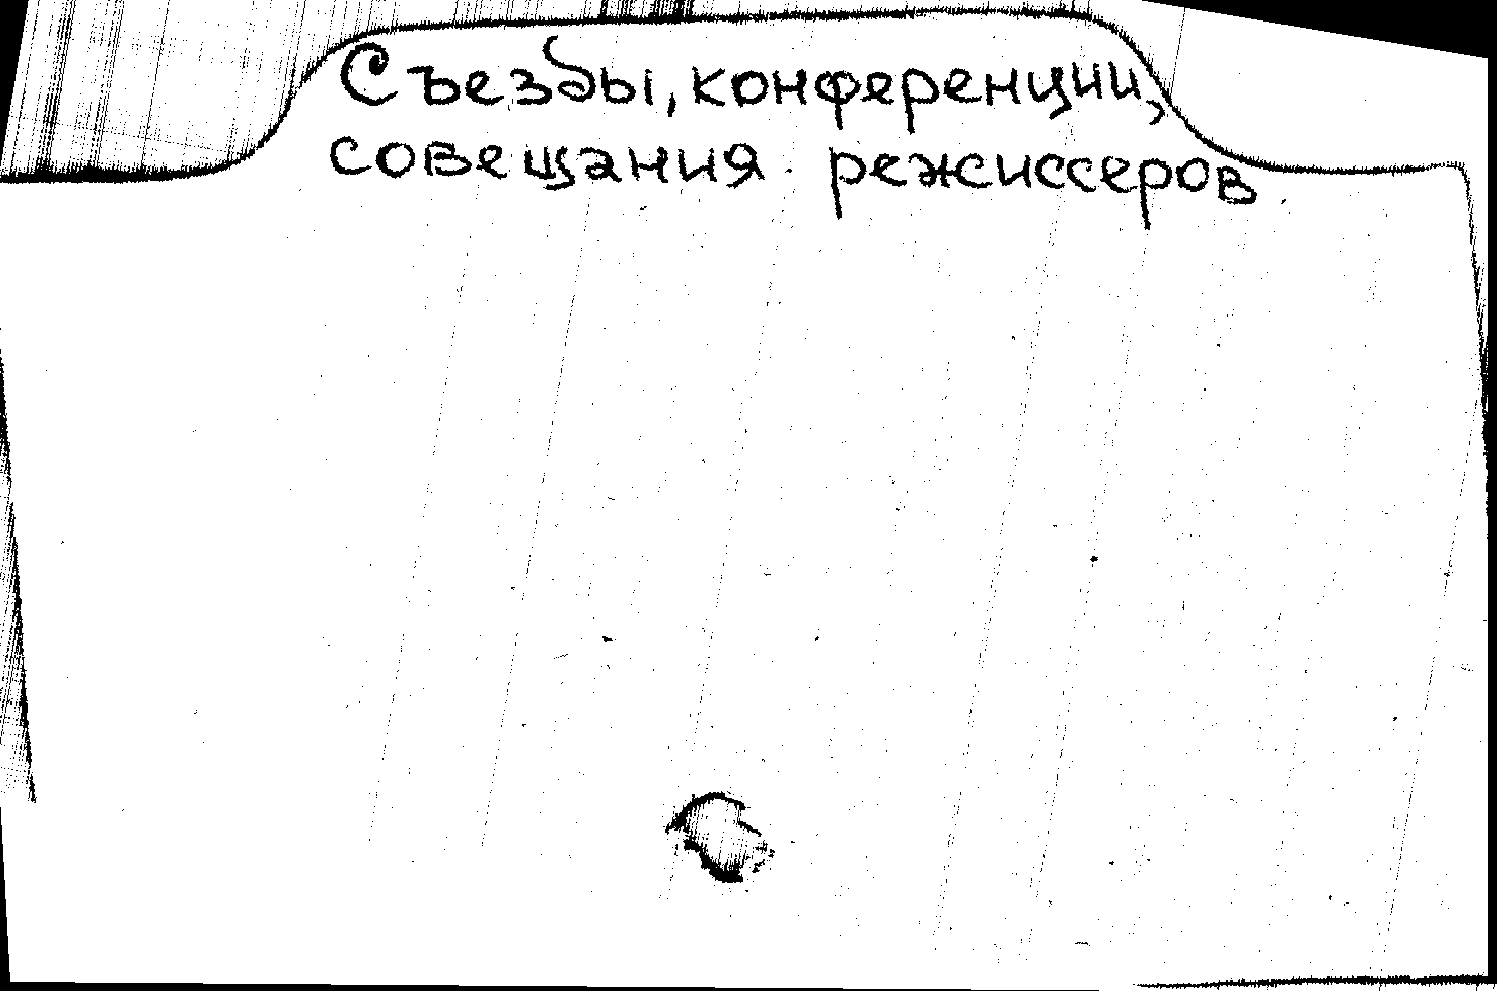 Съезды, конференции,
совещания режиссеров